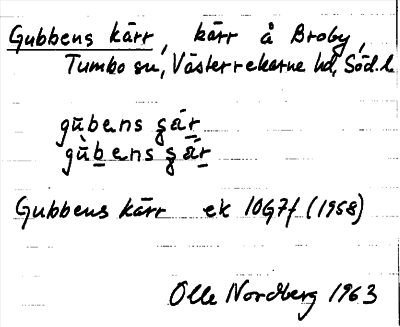 Gubbens kärr, kärr å Broby,
Tumbo sn, Västerrekarne hd, Söd. l.
gūbens
gùbens
Gubbens kärr ek 10G7f (1958)
Olle Nordberg 1963